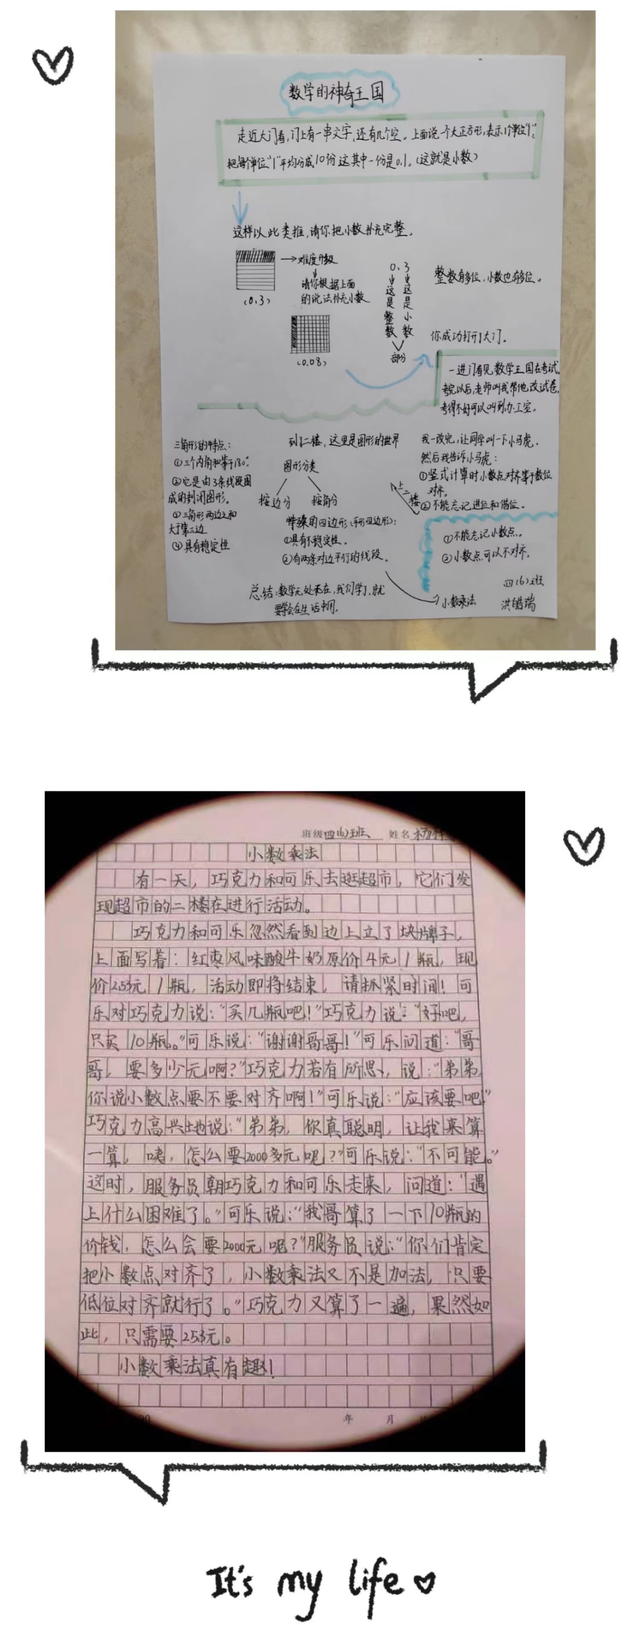 数学的神奇王国
走近大门看,门上有一串文字,还有几个空。上面说一个大正方形,表示1个单位"1",
把每个单位"1"平均分成10份这其中一份是0.1。(这就是小数)
这样以此类推,请你把小数补充完整。
→难度升级
请你根据上面
的说法补充小数
(0.3)
(0.08)
0.3
这是整数
这是小数
部分
整数有多位,小数也有多位。
你成功打开了大门。
一进门看见数学王国在考试,
考完以后,老师叫我帮他改试卷,
考得不好可以叫到办工室。
三角形的特点:
①三个内角和等于180°
②它是由3条线段围
成的封闭图形。
③三角形两边之和
大于第三边
④具有稳定性
到二楼,这里是图形的世界
图形分类
按边分 按角分
特殊的四边形(平行四边形):
①具有不稳定性。
②有两条对边平行的线段。
上二楼
我一改完,让同学叫一下小马虎,
然后我告诉小马虎:
①竖式计算时小数点对齐等于数位
对齐。
②不能忘记进位和借位。
①不能忘记小数点。
②小数点可以不对齐。
小数乘法
总结:数学无处不在,我们学了,就
要学会在生活中用。
四(6)班
洪锴瑞
班级 四(6)班 姓名 杨
小数乘法
有一天,巧克力和可乐去逛超市,它们发
现超市的二楼在进行活动。
巧克力和可乐忽然看到边上立了块牌子,
上面写着:红枣风味酸牛奶原价4元1瓶,现
价2.53元1瓶,活动即将结束,请抓紧时间!可
乐对巧克力说:"买几瓶吧!"巧克力说:"好吧,
只买10瓶。"可乐说:"谢谢哥哥!"可乐问道:"哥
哥,要多少元啊?"巧克力若有所思,说:"弟弟
你说小数点要不要对齐啊!"可乐说:"应该要吧"
巧克力高兴地说:"弟弟,你真聪明,让我来算
一算,咦,怎么要2000多元呢?"可乐说:"不可能。"
这时,服务员朝巧克力和可乐走来,问道:"遇
上什么困难了。"可乐说:"我哥算了一下10瓶的
价钱,怎么会要2000元呢?"服务员说:"你们肯定
把小数点对齐了,小数乘法又不是加法,只要
低位对齐就行了。"巧克力又算了一遍,果然如
此,只需要25.3元。
小数乘法真有趣!
年 月
It's my life